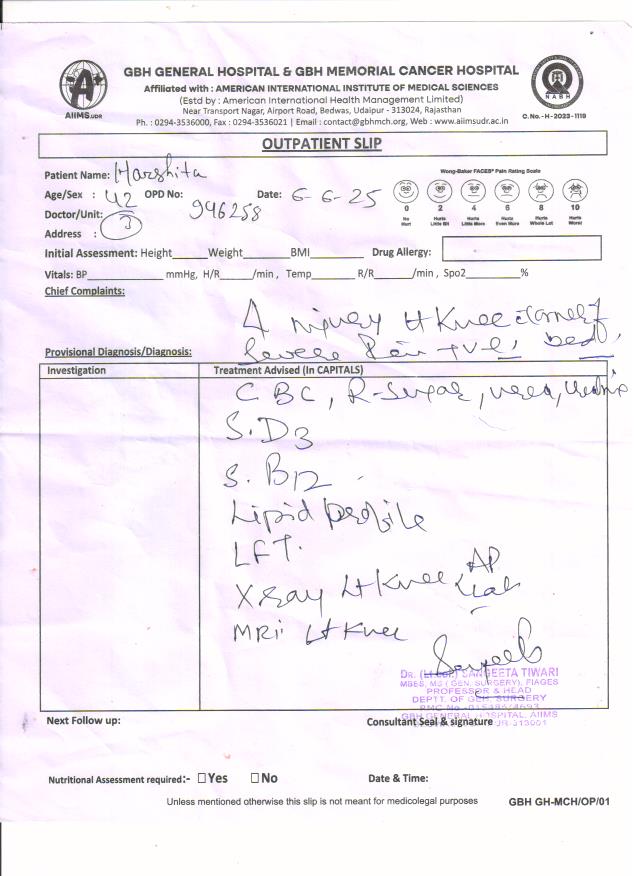 GBH GENERAL HOSPITAL & GBH MEMORIAL CANCER HOSPITAL
Affiliated with : AMERICAN INTERNATIONAL INSTITUTE OF MEDICAL SCIENCES
(Estd by : American International Health Management Limited)
Near Transport Nagar, Airport Road, Bedwas, Udaipur - 313024, Rajasthan
Ph. : 0294-3536000, Fax : 0294-3536021 | Email : contact@gbhmch.org, Web : www.aiimsudr.ac.in
AIIMS.UDR
NABH
C.No.-H-2023-1119
OUTPATIENT SLIP
Patient Name: Harshita
Wong-Baker FACES® Pain Rating Scale
Age/Sex : 42 OPD No: 946258 Date: 6-6-25
0 2 4 6 8 10
No Hurt Hurts Little Bit Hurts Little More Hurts Even More Hurts Whole Lot Hurts Worst
Doctor/Unit: 3
Address :
Initial Assessment: Height Weight BMI Drug Allergy:
Vitals: BP mmHg, H/R /min , Temp R/R /min , Spo2 %
Chief Complaints:
injury Lt Knee
Provisional Diagnosis/Diagnosis: Severe Pain +ve,
Investigation Treatment Advised (In CAPITALS)
CBC, R-Sugar, urea,
S.D3
S. B12
Lipid profile
LFT.
X ray Lt Knee AP
MRI Lt Knee
DR. (Lt Col.) SANGEETA TIWARI
MBBS, MS (GEN. SURGERY), FIAGES
PROFESSOR & HEAD
DEPTT. OF GEN. SURGERY
GBH GENERAL HOSPITAL, AIIMS
Next Follow up: Consultant Seal & signature
Nutritional Assessment required:- Yes No Date & Time:
Unless mentioned otherwise this slip is not meant for medicolegal purposes GBH GH-MCH/OP/01